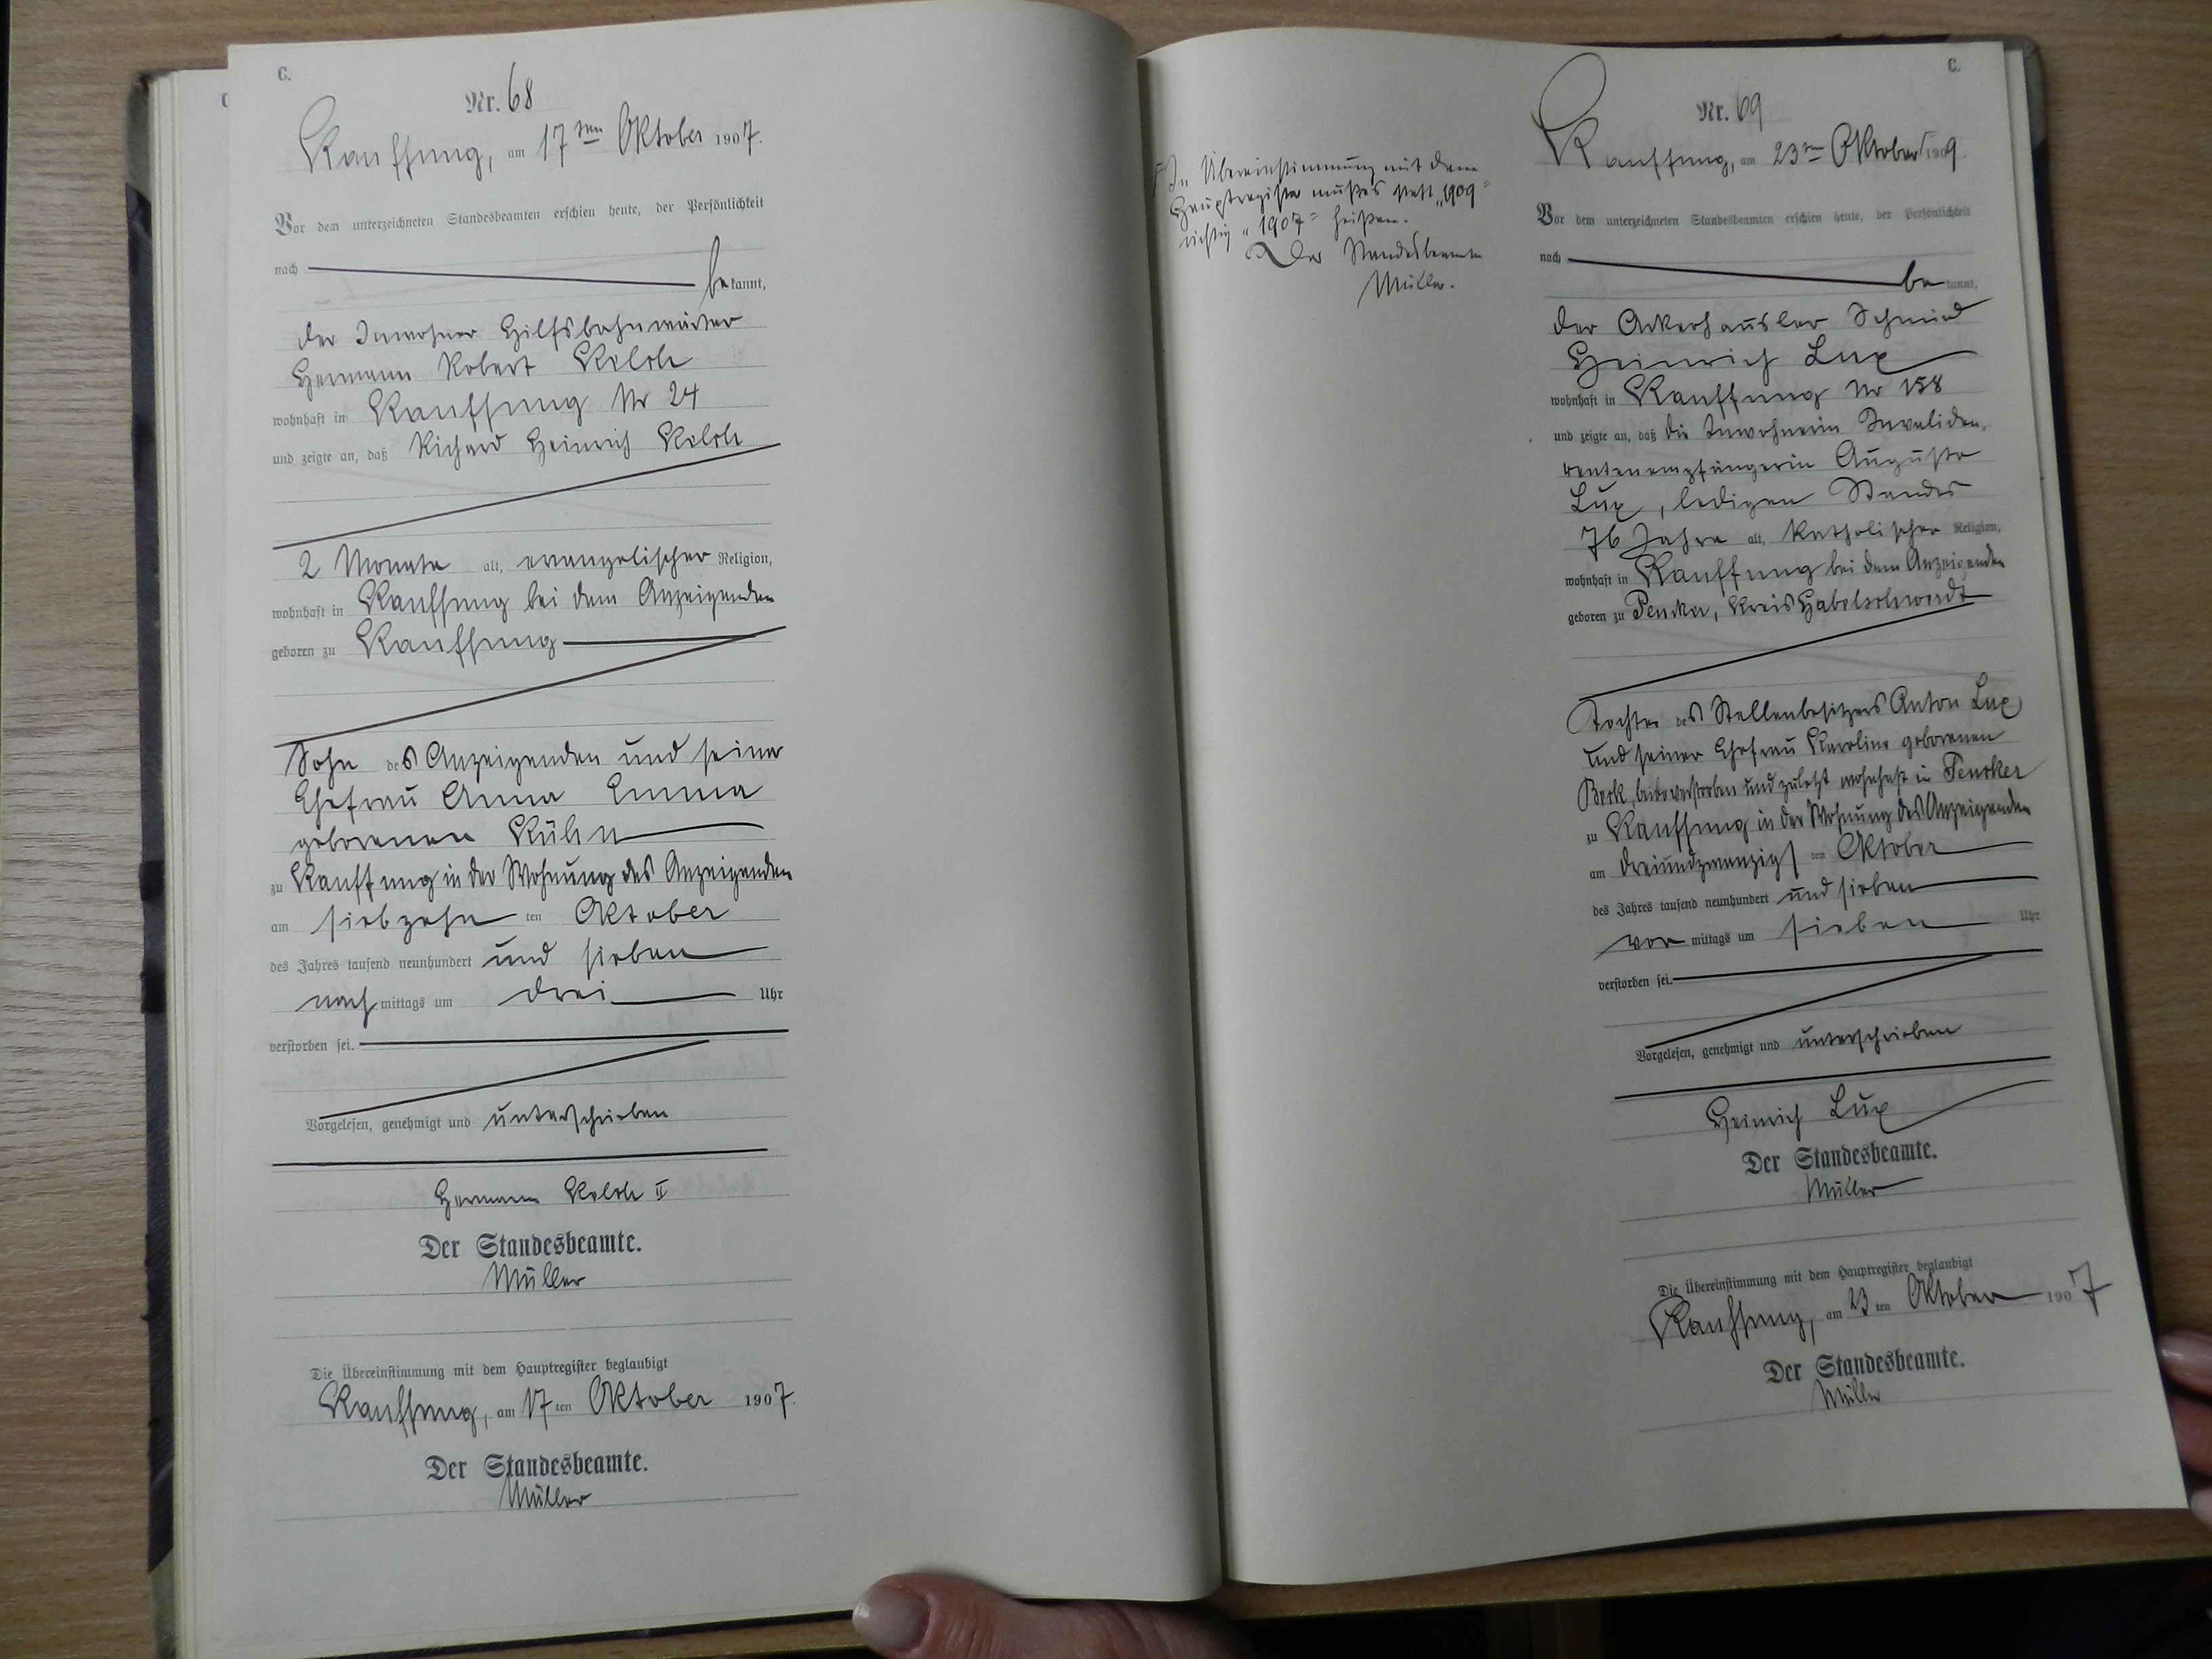 C.
Nr. 68
Kauffung, am 17ten Oktober 1907.
Vor dem unterzeichneten Standesbeamten erschien heute, der Persönlichkeit
nach be kannt,
der Inwohner Hilfsbahnwärter
Hermann Robert
wohnhaft in Kauffung Nr 24
und zeigte an, daß Richard Heinrich
2 Monate alt, evangelischer Religion,
wohnhaft in Kauffung bei dem Anzeigenden
geboren zu Kauffung
Sohn des Anzeigenden und seiner
Ehefrau Anna Emma
geborenen Kühn
zu Kauffung in der Wohnung des Anzeigenden
am siebzehn ten Oktober
des Jahres tausend neunhundert und sieben
nach mittags um drei Uhr
verstorben sei.
Vorgelesen, genehmigt und unterschrieben
Hermann II
Der Standesbeamte.
Müller
Die Übereinstimmung mit dem Hauptregister beglaubigt
Kauffung, am 17 ten Oktober 1907.
Der Standesbeamte.
Müller
In Übereinstimmung mit dem
Hauptregister muß es statt „1909"
richtig „1907" heißen.
Der Standesbeamte
Müller.
C.
Nr. 69
Kauffung, am 23ten Oktober 1909.
Vor dem unterzeichneten Standesbeamten erschien heute, der Persönlichkeit
nach be kannt,
der Ackerhäusler Schmied
Heinrich Lux
wohnhaft in Kauffung Nr 158
und zeigte an, daß die Inwohnerin Invaliden,
rentenempfängerin Augusta
Lux, ledigen Standes
76 Jahre alt, katholischer Religion,
wohnhaft in Kauffung bei dem Anzeigenden
geboren zu Peucker, Kreis Habelschwerdt
Tochter des Stellenbesitzers Anton Lux
und seiner Ehefrau Karoline geborenen
beide verstorben und zuletzt wohnhaft in Peucker
zu Kauffung in der Wohnung des Anzeigenden
am dreiundzwanzigs ten Oktober
des Jahres tausend neunhundert und sieben
vor mittags um sieben Uhr
verstorben sei.
Vorgelesen, genehmigt und unterschrieben
Heinrich Lux
Der Standesbeamte.
Müller
Die Übereinstimmung mit dem Hauptregister beglaubigt
Kauffung, am 23 ten Oktober 1907
Der Standesbeamte.
Müller